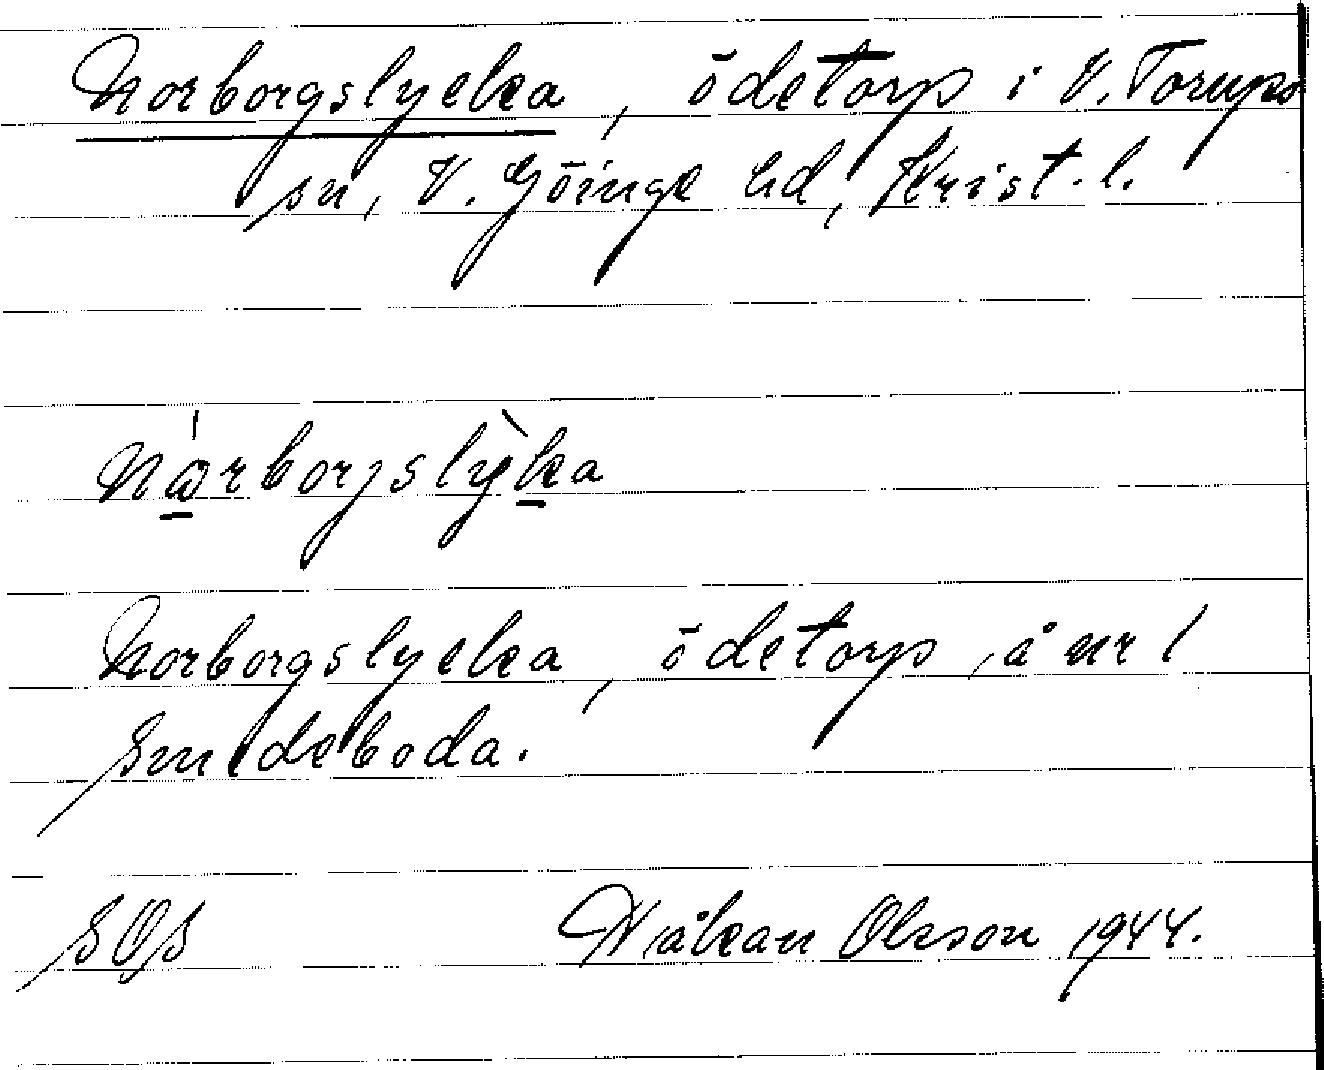 Norborgslycka, ödetorp i V. Torups
sn, V. Göinge hd, Krist. l.
nǻrborjslỳka
Norborgslycka, ödetorp, å nr 1
Smedeboda.
SOS Håkan Olsson 1944.